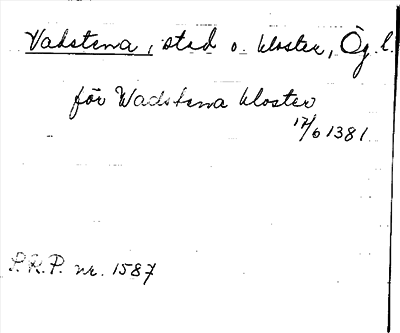 Vadstena, stad o. kloster, Ög. l.
för Wadstena kloster
17/6 1381.
S.R.P. nr. 1587